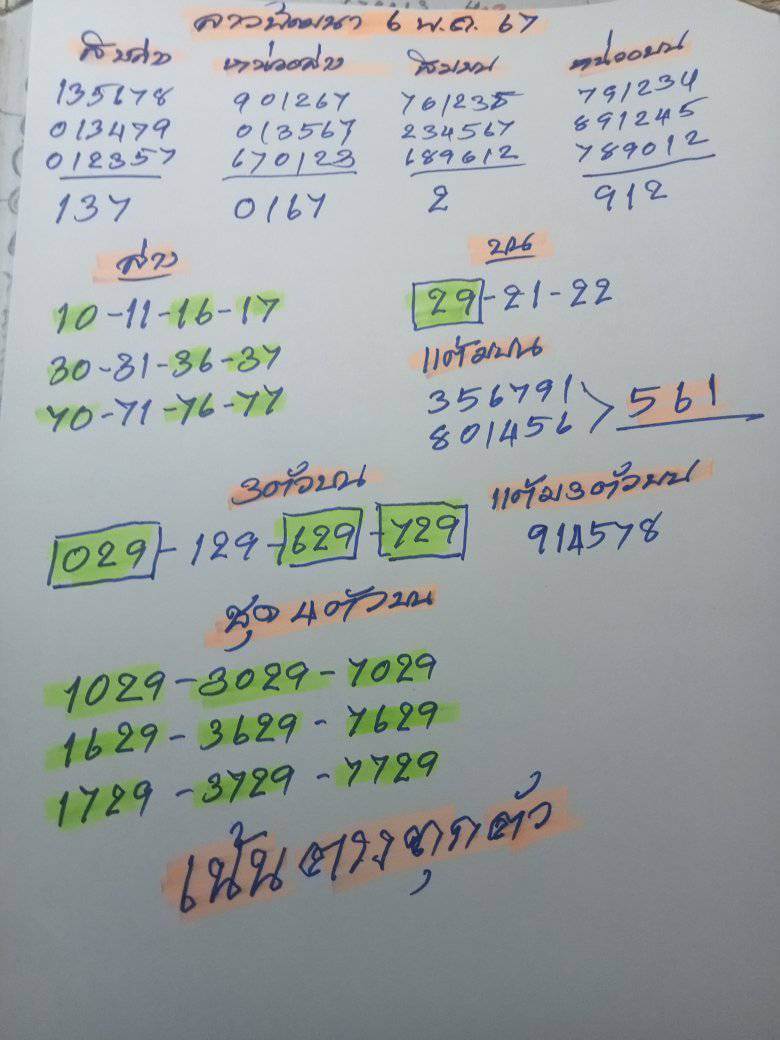 ลาวพัฒนา 6 พ.ค. 67
สิบล่าง หน่วยล่าง สิบบน หน่วยบน
135678 901267 761235 791234
013479 013567 234567 891245
012357 670123 689012 789012
137 0167 2 912
ล่าง บน
10-11-16-17 29-21-22
30-31-36-37 แต้มบน
70-71-76-77 356791
801456 > 561
3ตัวบน แต้ม3ตัวบน
029-129-629-729 914578
ชุด 4ตัวบน
1029-3029-7029
1629-3629-7629
1729-3729-7729
เน้นตารางทุกตัว